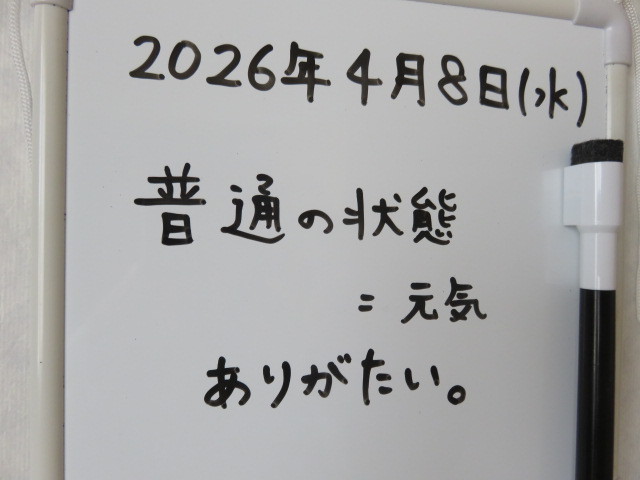 2026年4月8日(水)
普通の状態
=元気
ありがたい。